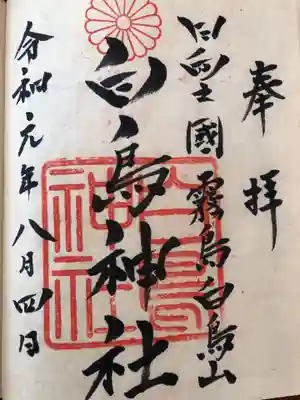 奉拝
日向國霧島白鳥山
白鳥神社
令和元年八月四日
白鳥
神社